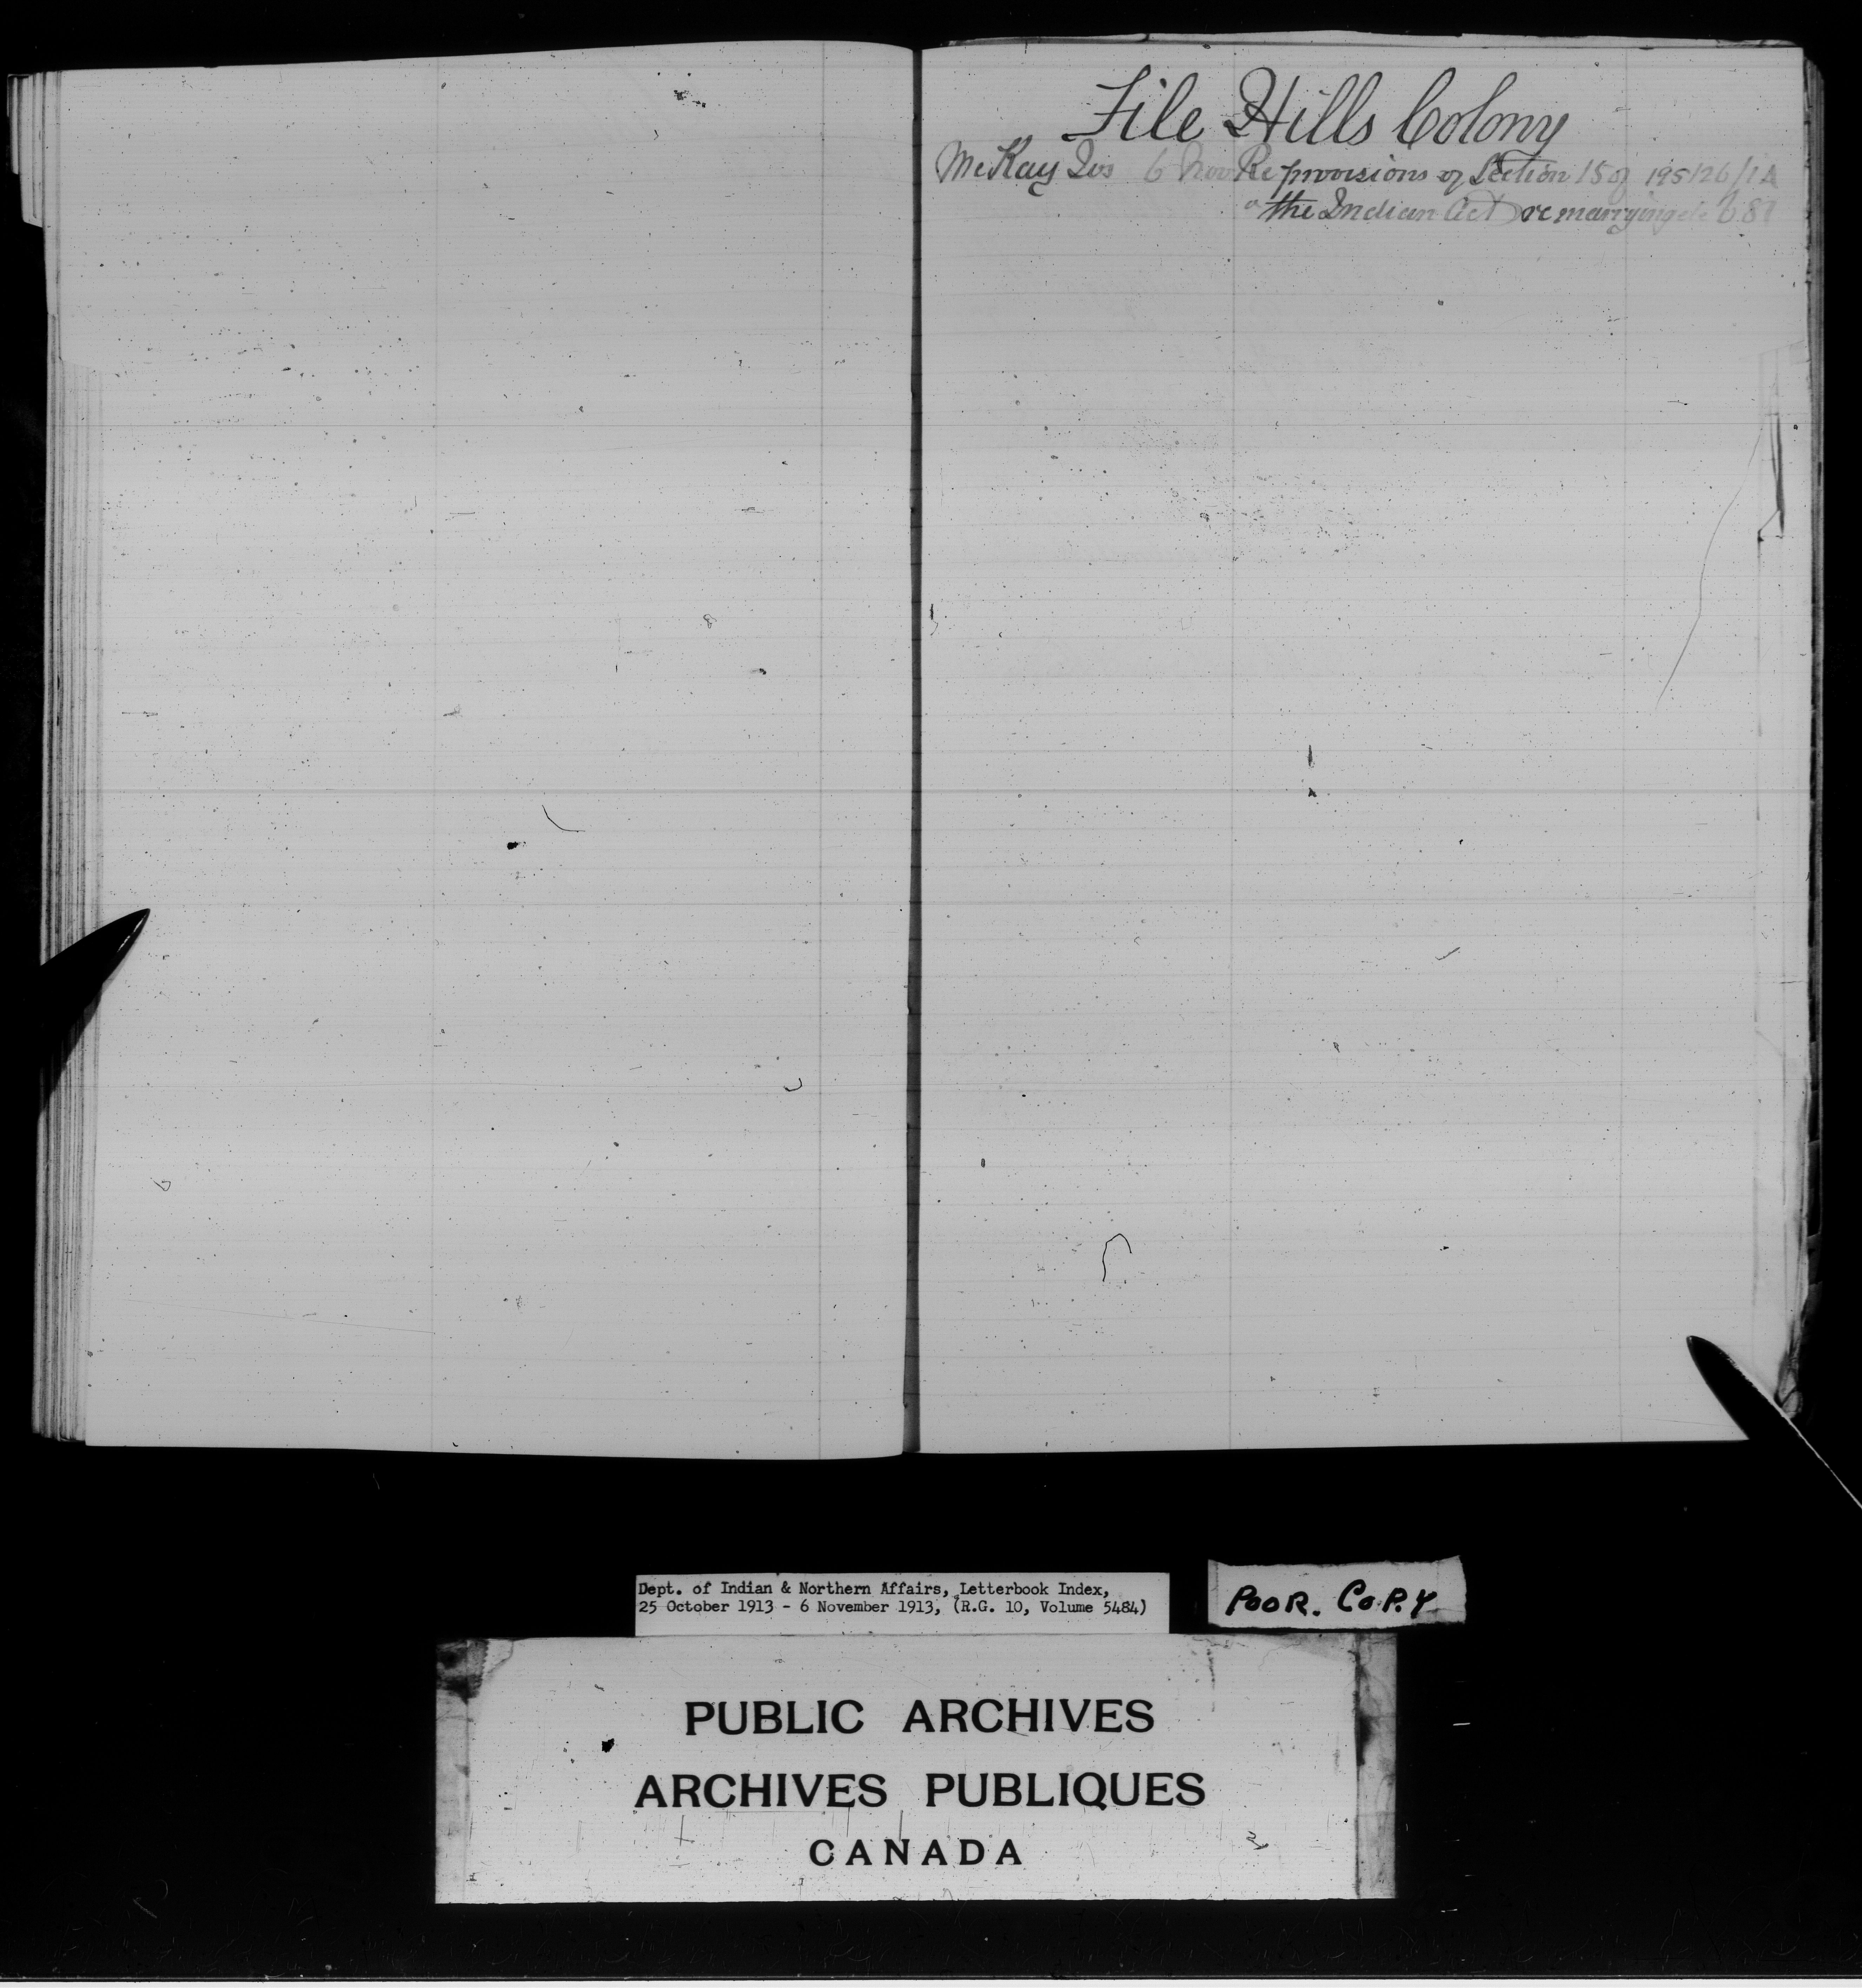 File Hills Colony
McKay Jos 6 Nov Re provisions of Section 15 of 195126/1A
the Indian Act re marrying etc 681
Dept. of Indian & Northern Affairs, Letterbook Index,
25 October 1913 - 6 November 1913, (R.G. 10, Volume 5484)
POOR. COPY
PUBLIC ARCHIVES
ARCHIVES PUBLIQUES
CANADA